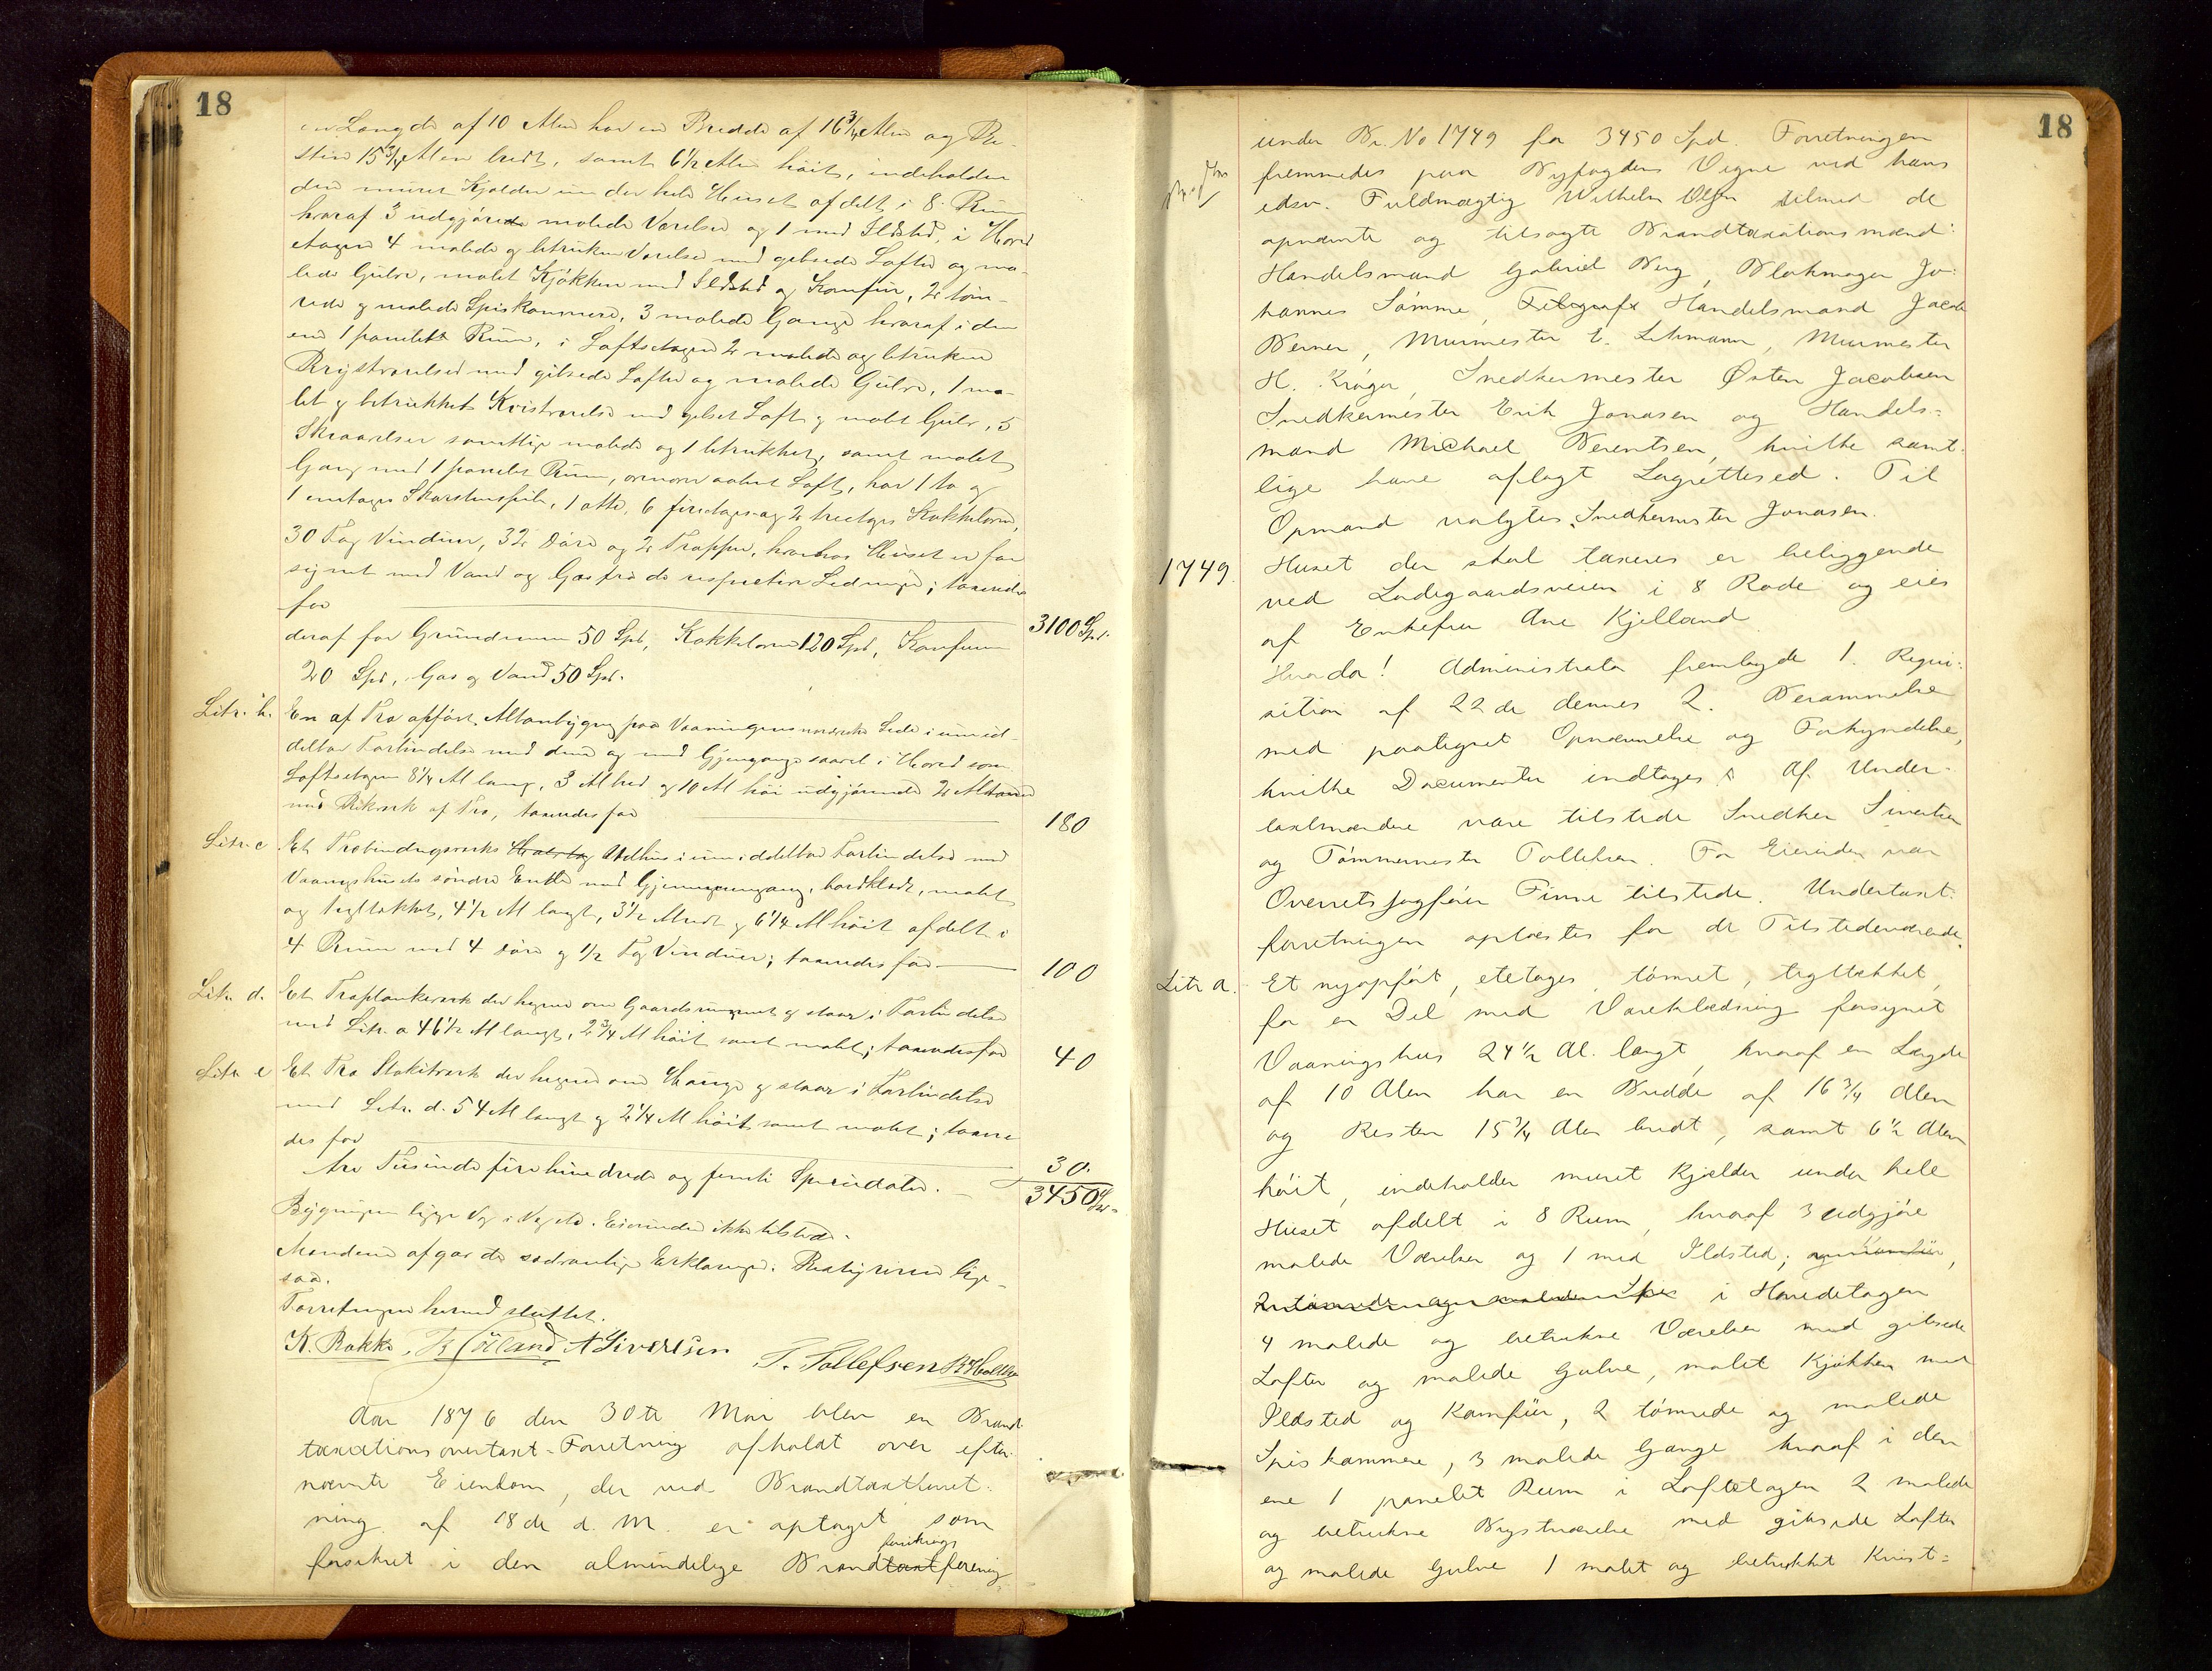 18
en Længde af 10 Alen har en Bredde af 16 3/4 Alen og Re-
sten 15 3/4 Alen bredt, samt 6 1/2 Alen höit, indeholder
den muret Kjælder under hele Huset afdelt i 8 Rum
hvoraf 3 udgjörede malede Værelser og 1 med Ildsted, i Hoved
etagen 4 malede og betrukne Værelser med gibsede Lofter og ma-
lede Gulve, malet Kjökken med Ildsted og Komfur, 2 töm-
rede og malede Spiskammere, 3 malede Gange hvoraf i den
ene 1 panelet Rum, i Loftsetagen 2 malede og betrukne
Brystværelser med gibsede Lofter og malede Gulve, 1 ma-
let og betrukket Kvistværelse med gibset Loft og malet Gulv, 5
samtlige malede og 1 betrukket, samt malet
Gang med 1 panelet Rum, Loft, har 1 to og
1 enetages Skorstenspibe, 1 otte, 6 firetages og 2 treetges Kakkelovne,
30 Fag Vinduer, 32 Döre og 2 Trapper, hvorhos Huset er for
synet med Vand og Gas fra de respective Ledninger; taxeredes
for 3100 Spd.
deraf for Grundmuren 50 Spd, Kakkelovne 120 Spd, Komfuren
20 Spd, Gas og Vand 50 Spd.
Litr. b. En af Træ opfört Altanbygning paa Vaaningens nordre Side i umid-
delbar Forbindelse med denne og med Gjengang saavel i Hoved som
Loftsetagen 8 1/4 Al lang, 3 Al bred og 10 Al höi udgjörende 2 Altaner
med Rækværk af Træ, taxeredes for 180
Litr. c Et Træbindingsværks Udhus i umiddelbar Forbindelse med
Vaaningshusets söndre Ende med Gjennemgang, bordklædt, malet
og tegltækket, 4 1/2 Al langt, 3 1/2 Al bredt og 6 1/4 Al höit afdelt i
4 Rum med 4 Döre og 1/2 Fag Vinduer; taxeredes for 100
Litr. d. Et Træplankeværk der hegner om Gaardsrummet og staar i Forbindelse
med Litr. a 46 1/2 Al langt, 2 3/4 Al höit samt malet; taxeredes for 40
Litr. e Et Træ Stakitværk der hegner om Hauge og staar i Forbindelse
med Litr. d. 54 Al langt og 2 1/4 Al höit samt malet; taxere
des for 30.
tre Tusinde fire hundrede og femti Speciedaler. 3450
Bygningen ligger No i No. Eierinden ikke tilstede.
Mændene afgav de sædvanlige Erklæringer. lige-
saa.
Forretningen hermed sluttet.
K. Rokke. A Sivertsen T. Tollefsen
Aar 1876 den 30te Mai blev en Brand
taxationsovertaxt-Forretning afholdt over efter-
nævnte Eiendom, der ved Brandtaxtforret-
ning af 18de d. M. er optaget som
forsikrings
forsikret i den almindelige Brandtaxtforening
18
under Br. No 1749 for 3450 Spd. Forretningen
fremmedes paa Byfogdens Vegne ved hans
edsv. Fuldmægtig Wilhelm Olsen tilmed de
opnævnte og tilsagte Brandtaxationsmænd:
Handelsmand Gabriel Berg, Blokmager Jo-
hannes Sömme, Handelsmand Jacob
Berner, Murmester E. Lehmann, Murmester
H. Kröger, Snedkermester Østen Jacobsen
Snedkermester Erik Jonasen og Handels-
mand Michael Berentsen, hvilke samt-
lige have aflagt Lagrettesed. Til
Opmand valgtes Snedkermester Jonasen.
1749. Huset der skal taxeres er beliggende
ved Ladegaardsveien i 8 Rode og eies
af Enkefru Ane Kjelland
Hvorda! Administrator fremlagde 1. Requi-
sition af 22de dennes 2. Berammelse
med paategnet Opnævnelse og Forkyndelse,
hvilke Documenter indtages Af Under-
taxtmændene vare tilstede Snedker Sivertsen
og Tömmermester Tollefsen. For Eierinden var
Overretssagförer Finne tilstede. Undertaxt-
forretningen oplæstes for de Tilstedeværende.
Litr a. Et nyopfört, etetages tömret, tegltækket,
for en Del med Vareklædning forsynet
Vaaningshus 24 1/2 Al. langt, hvoraf en Længde
af 10 Alen har en Bredde af 16 3/4 Alen
og Resten 15 3/4 Alen bredt, samt 6 1/2 Alen
höit, indeholder muret Kjælder under hele
Huset afdelt i 8 Rum, hvoraf 3 udgjöre
malede Værelser og 1 med Ildsted; og Komfür,
2 tömrede og malede Spis i Hovedetagen
4 malede og betrukne Værelser med gibsede
Lofter og malede Gulve, malet Kjökken med
Ildsted og Komfür, 2 tömrede og malede
Spiskammere, 3 malede Gange hvoraf i den
ene 1 panelet Rum i Loftetagen 2 malede
og betrukne Brystværelse med gibsede Lofter
og malede Gulve 1 malet og betrukket Kvist-